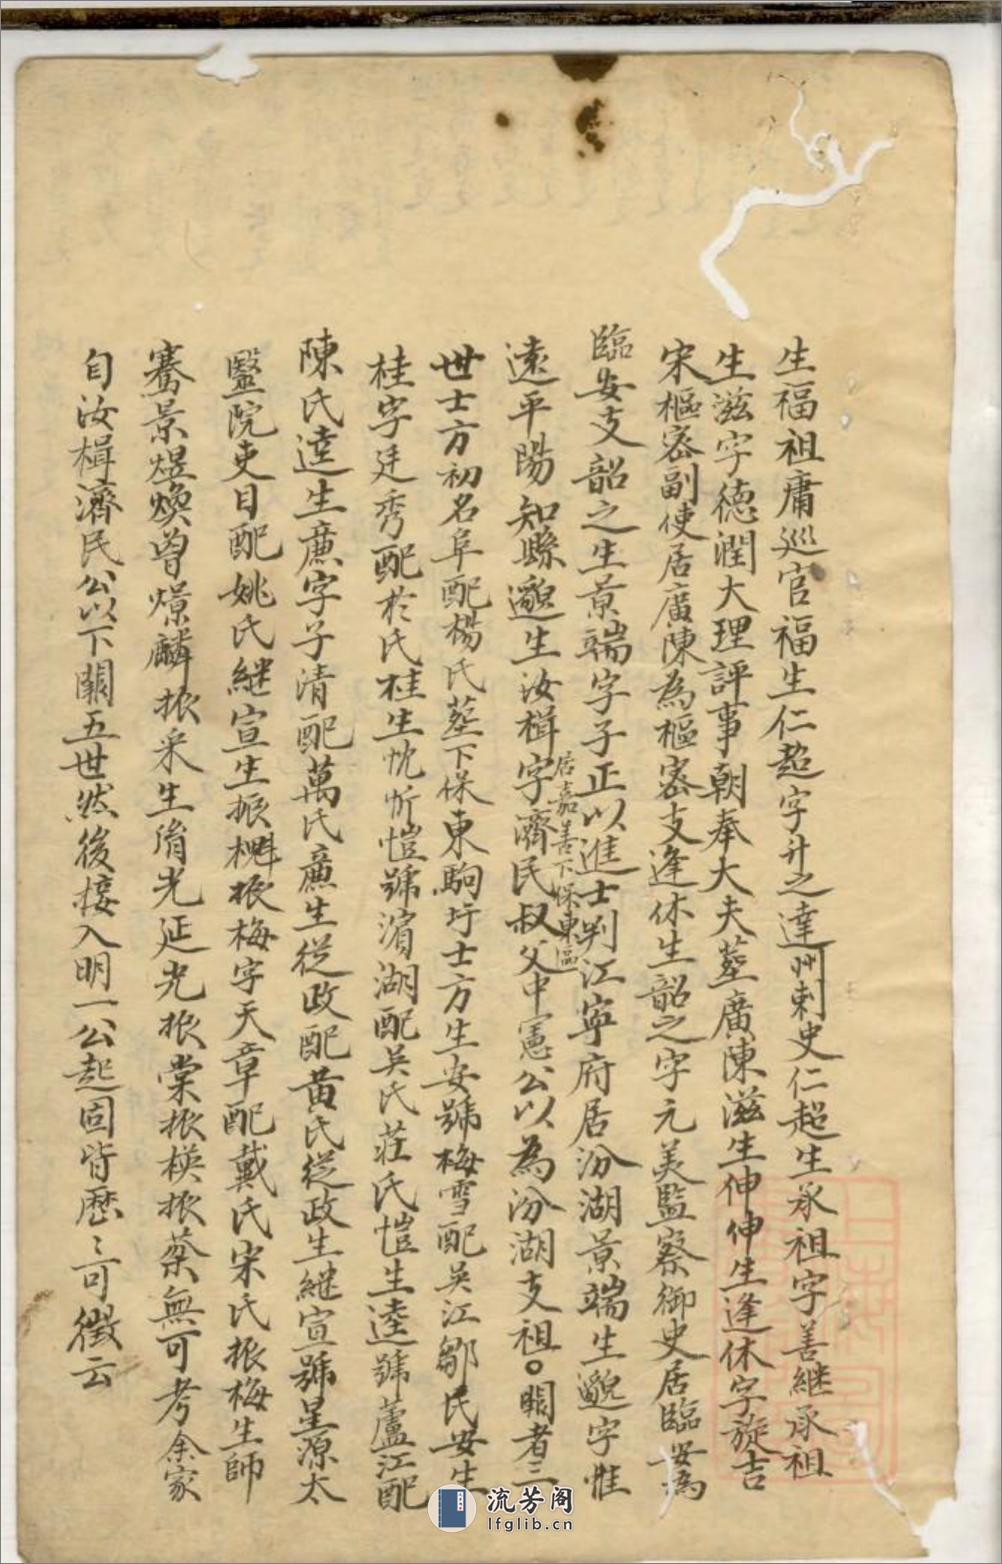 生福祖庸巡官福生仁超字升之達州刺史仁超生承祖字善継承祖
生滋字徳潤大理評事朝奉大夫墓廣陳滋生伸伸生逢休字旋吉
宋樞宻副使居廣陳為樞宻支逢休生韶之字元美監察御史居臨安為
臨安支韶之生景端字子正以進士判江寧府居汾湖景端生邈字惟
居嘉善下保東區
遠平陽知縣邈生汝楫字濟民叔父中憲公以為汾湖支祖。闕者三
世士方初名阜配楊氏墓下保東駒圩士方生安號梅雪配吴江鄒氏安生
桂字廷秀配於氏桂生忱忻愷號濵湖配吴氏莊氏愷生逵號蘆江配
陳氏逵生薦字子清配萬氏薦生従政配黄氏従政生継宣號星源太
醫院吏目配姚氏継宣生振振梅字天章配戴氏宋氏振梅生師
騫景煜煥曾燝麟振采生脩光延光振棠振模振蔡無可考余家
自汝楫濟民公以下闕五世然後接入明一公起固皆歴〻可徵云
流芳阁
lfglib.cn